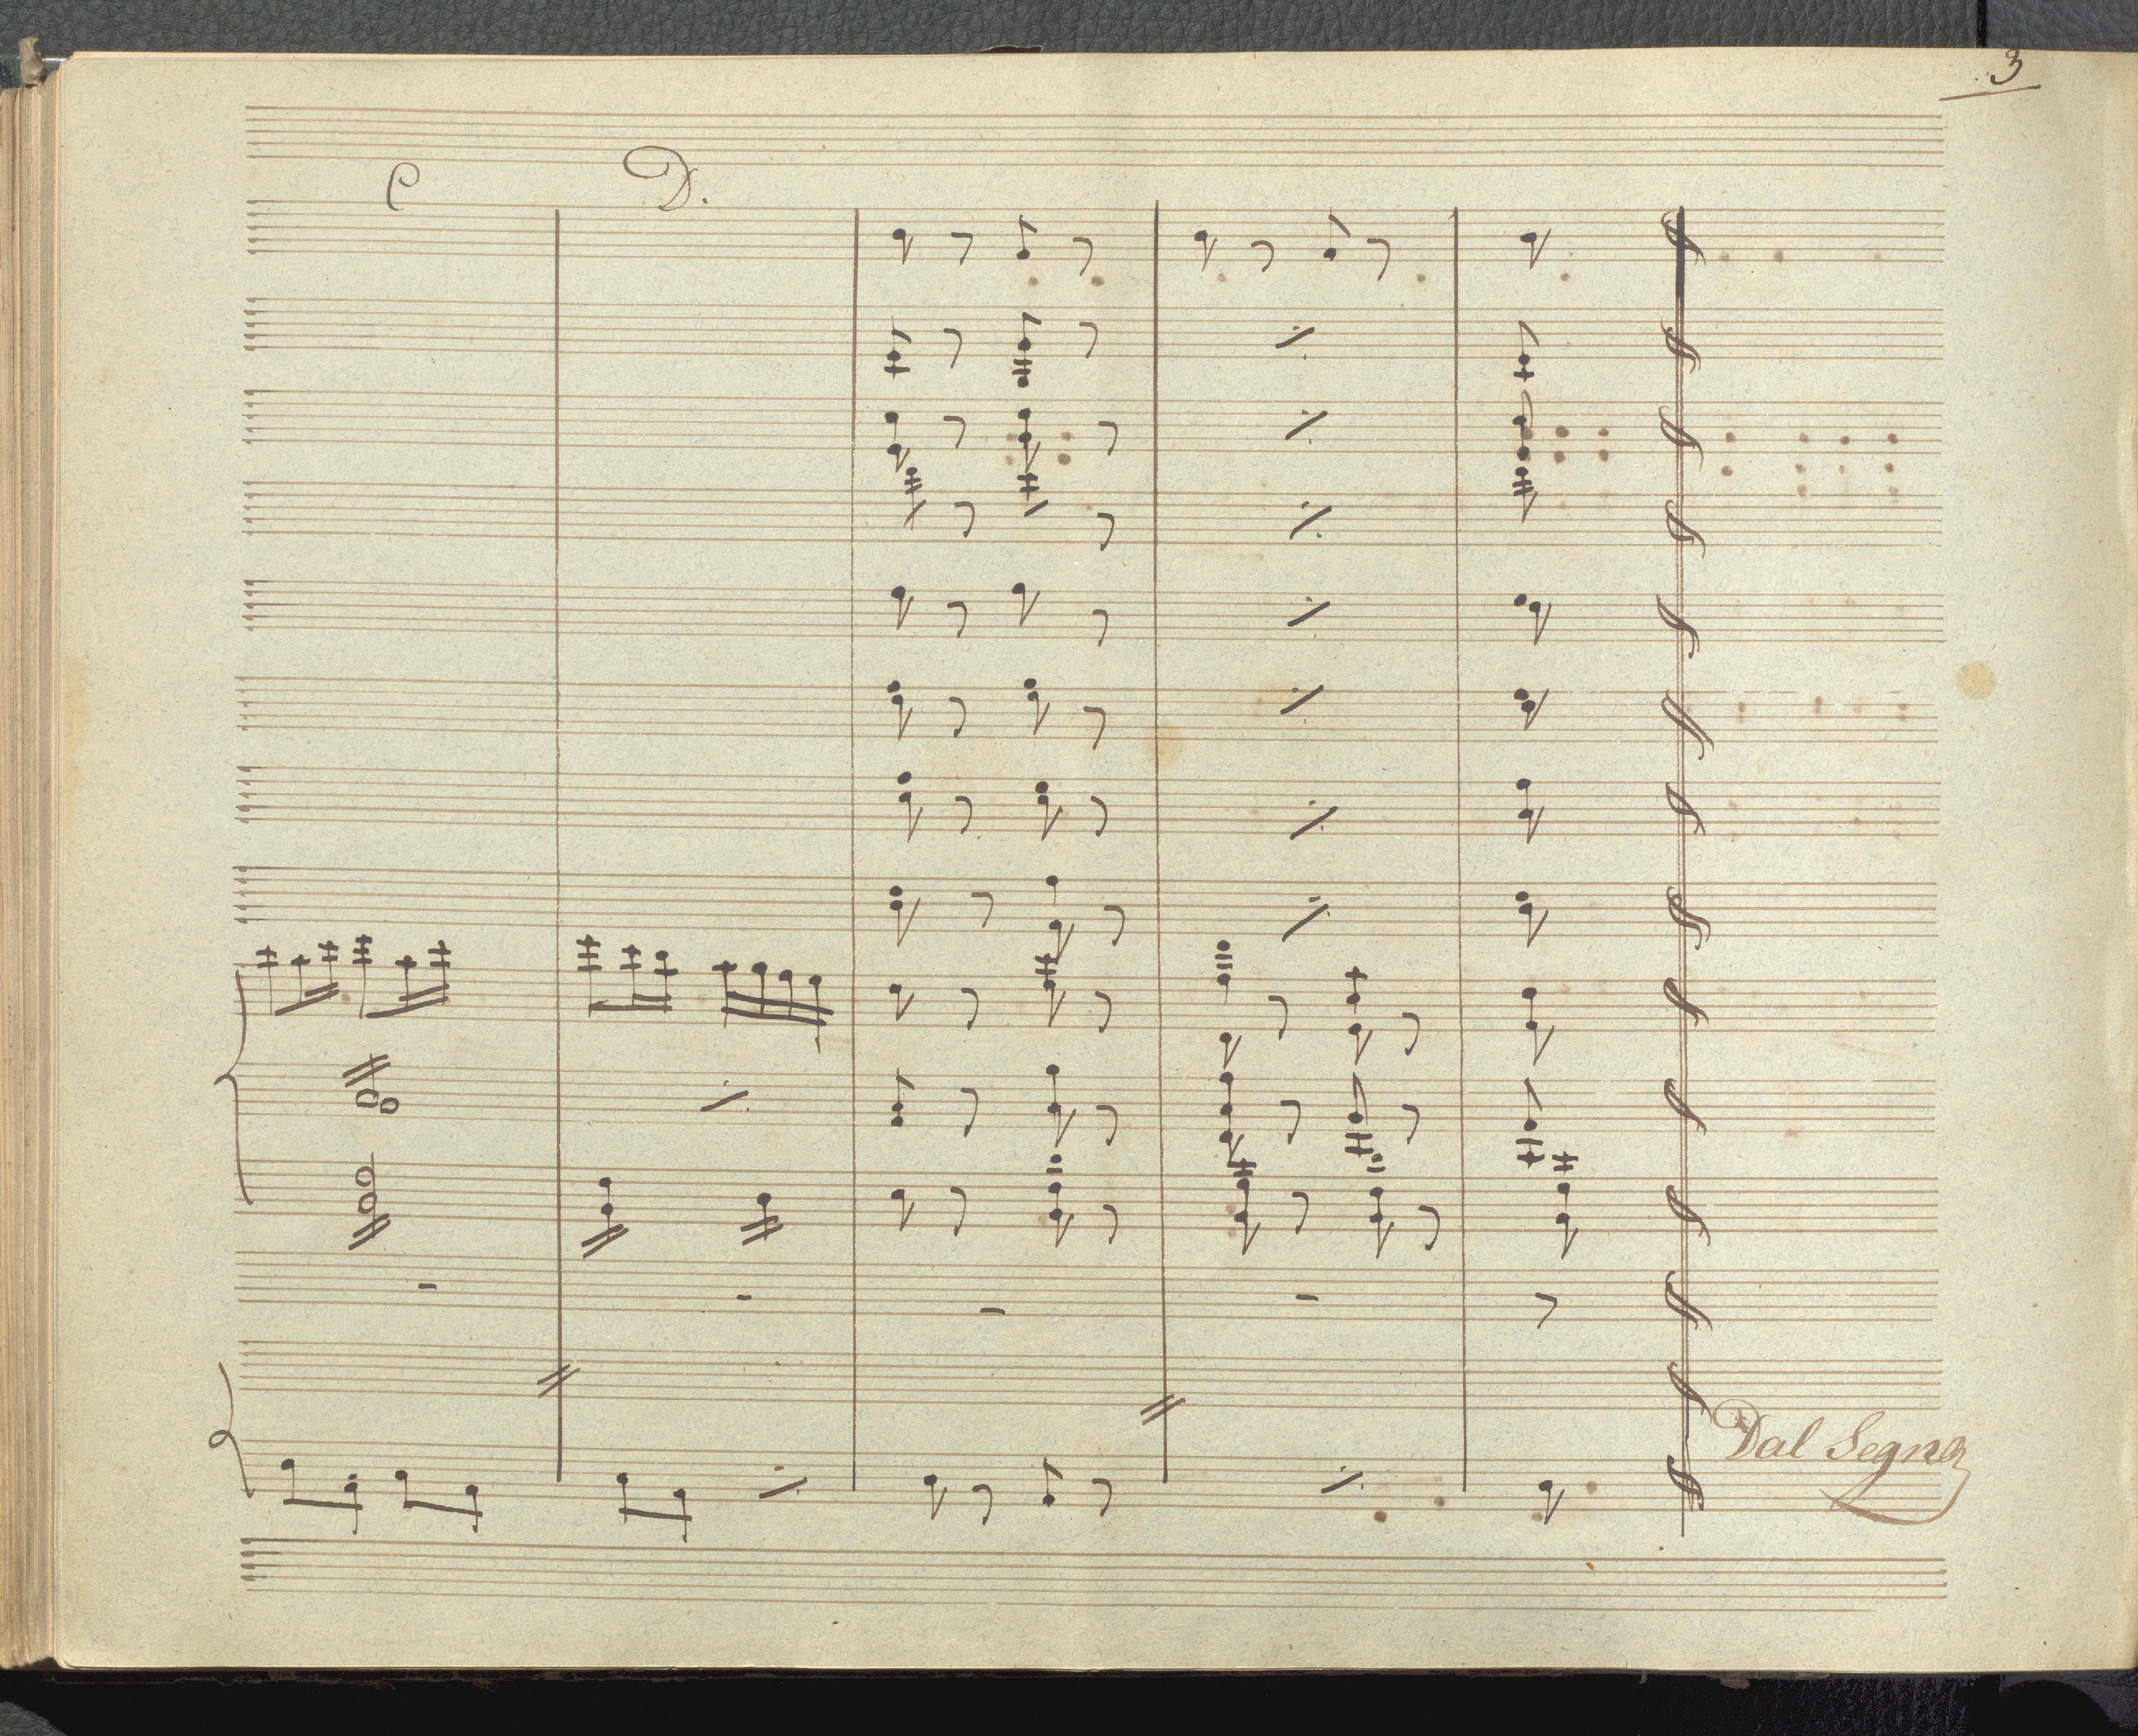 3
C D.
Dal Segno